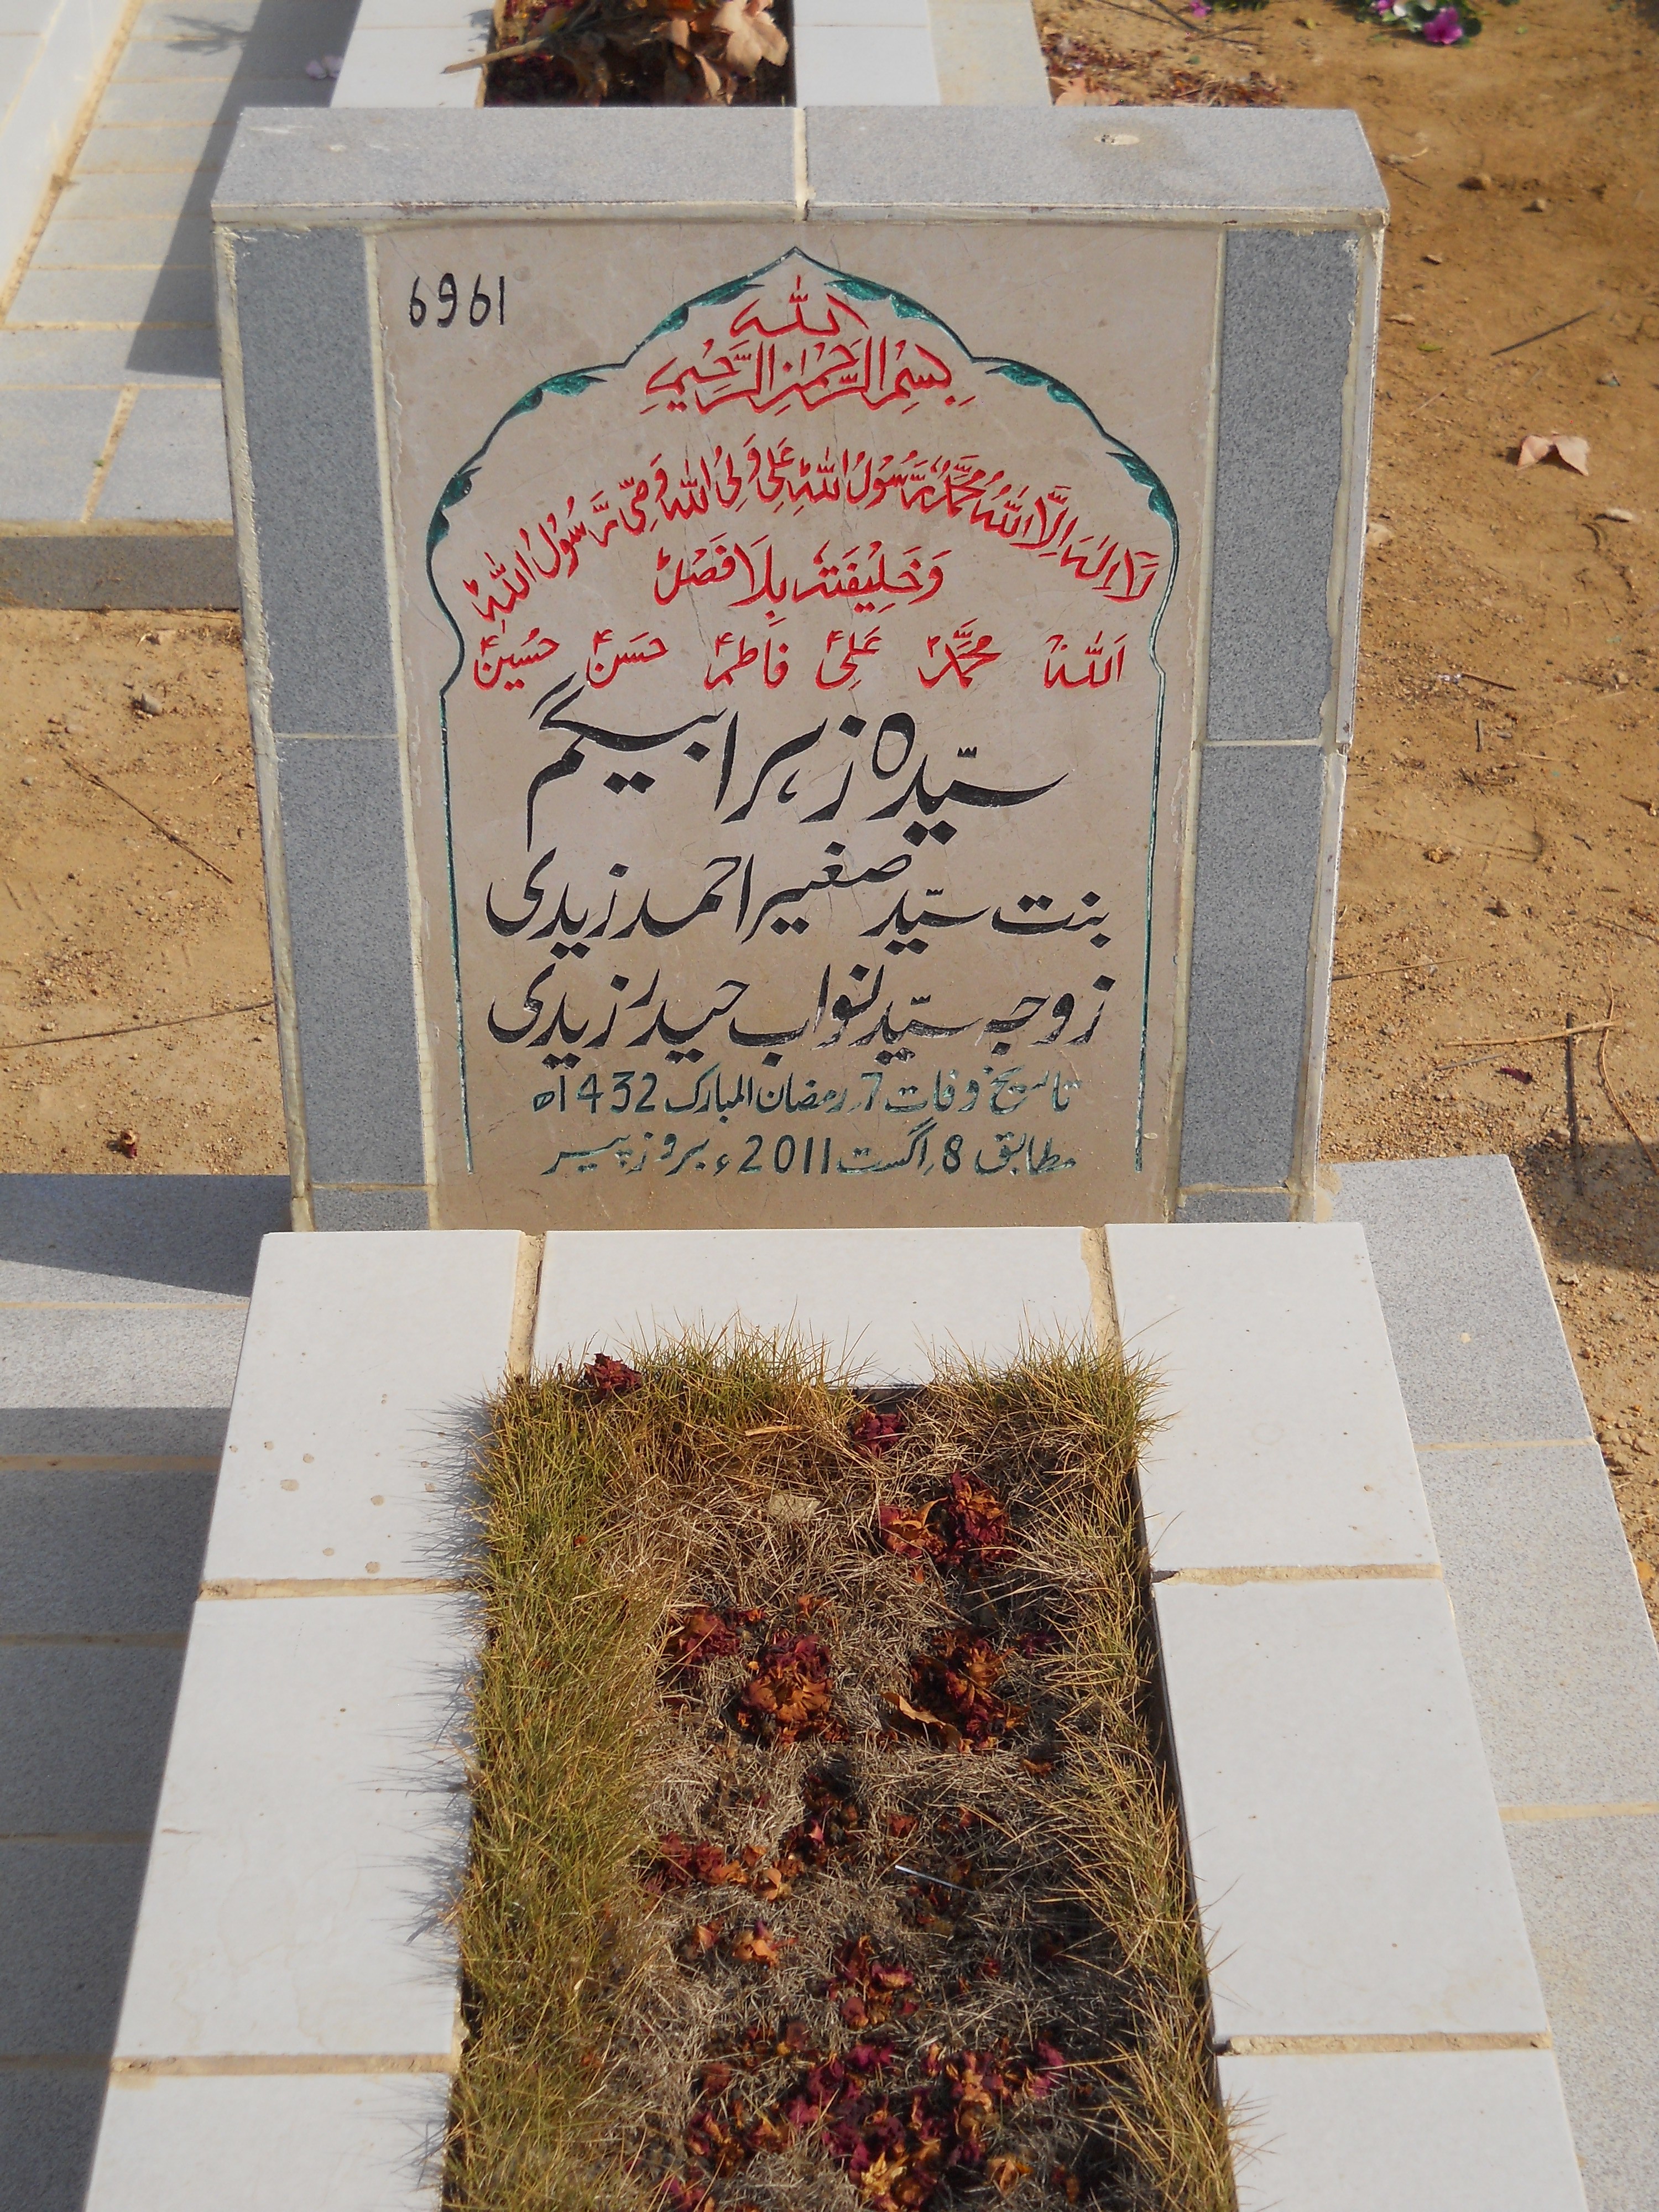 6961
بِسْمِ اللہِ الرَّحْمٰنِ الرَّحِیْمِ
لَا اِلٰهَ اِلَّا اللّٰهُ مُحَمَّدٌ رَّسُوْلُ اللّٰهِ عَلِیٌّ وَلِیُّ اللّٰهِ وَصِیُّ رَسُوْلُ اللّٰهِ
وَخَلِیْفَتُهٗ بِلَا فَصْلٍ
اَللّٰهُ مُحَمَّدؐ عَلِیؑ فَاطِمہؑ حَسَنؑ حُسَینؑ
سیّدہ زہرا بیگم
بنت سیّد صغیر احمد زیدی
زوجہ سیّد نواب حیدر زیدی
تاریخ وفات 7؍رمضان المبارک 1432ھ
مطابق 8؍اگست 2011ء بروز پیر